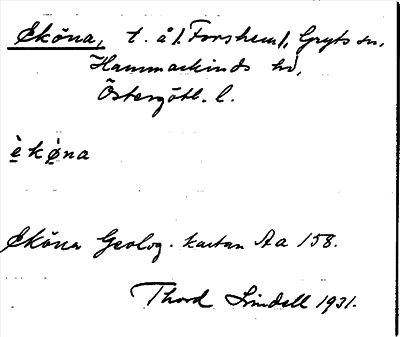 Eköna, t. å /. Forshem /, Gryts sn,
Hammarkinds hd,
Östergötl. l.
è k ø̀ na
Eköna Geolog. kartan Aa 158.
Thord Lindell 1931.